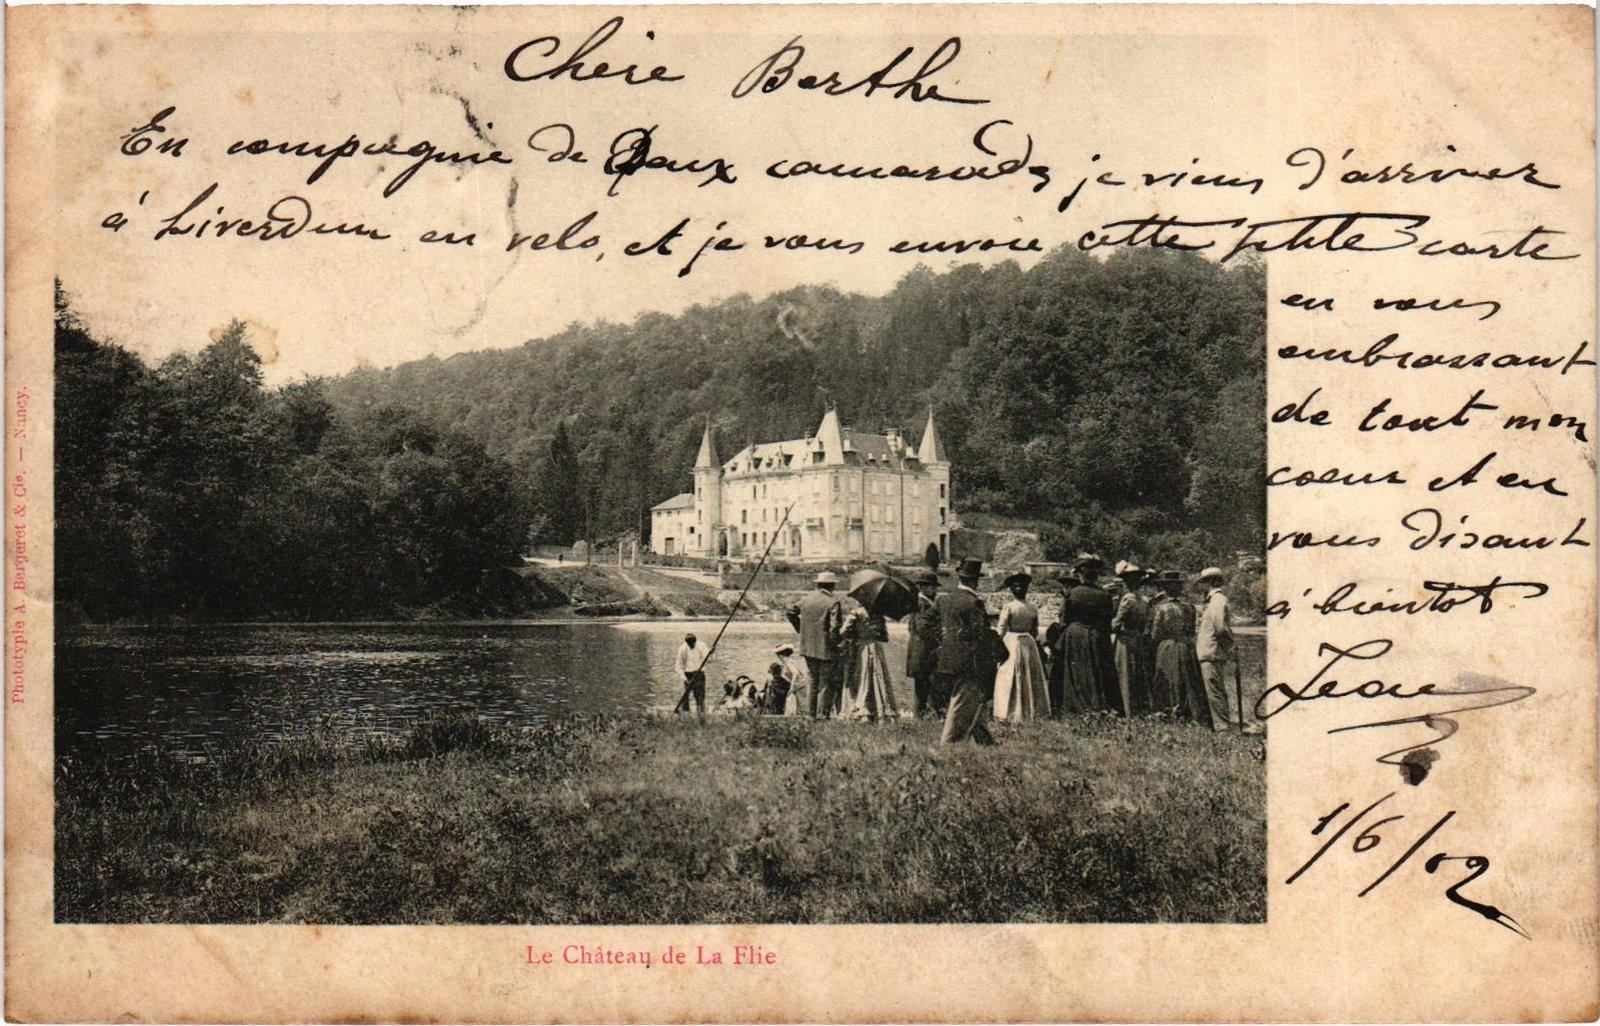 Chère Berthe
En compagnie de Deux camarades je viens d'arriver
à Liverdun en velo, et je vous envoie cette petite carte
en vous
embrassant
de tout mon
coeur et en
vous disant
à bientot
Jean
1/6/02
Phototypie A. Bergeret & Cie. — Nancy.
Le Château de La Flie